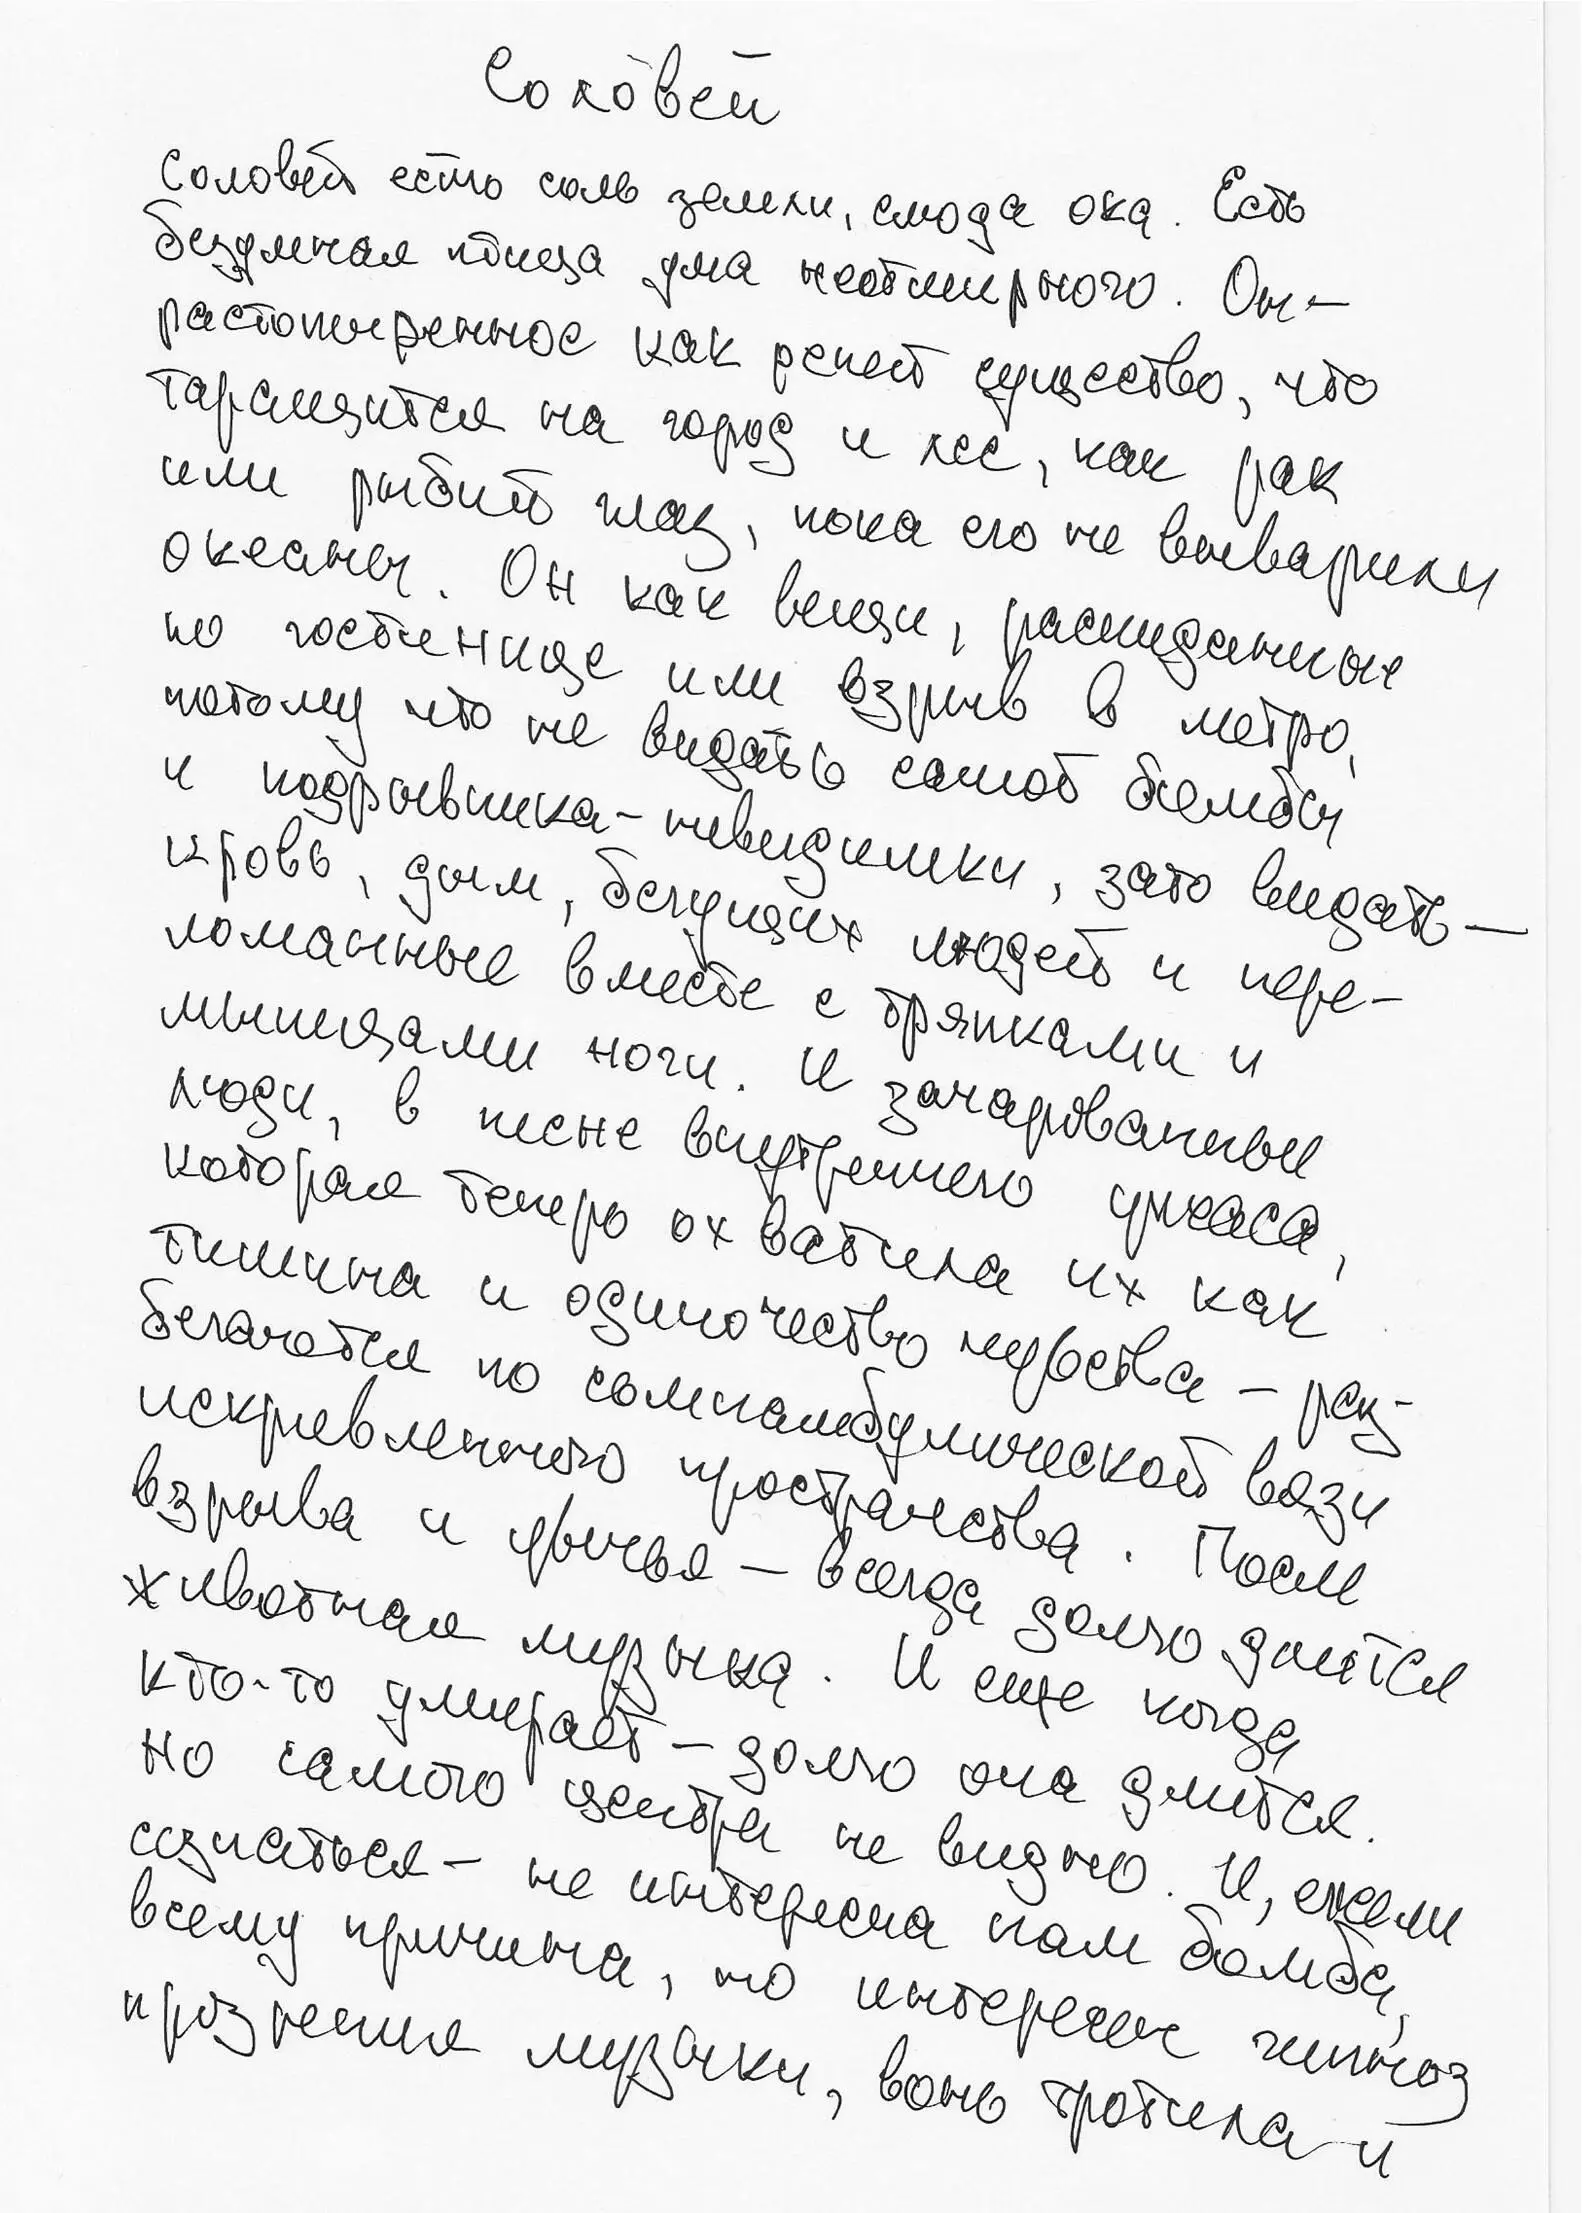 Соловей
Соловей есть соль земли, слюда ока. Есть
безумная птица ума неотмирного. Он –
растопыренное как репей существо, что
таращится на город и лес, как рак
или рыбий глаз, пока его не выварили
океаны. Он как вещи, раскиданные
по гостинице или взрыв в метро,
потому что не видать самой бомбы
и подрывника-невидимки, зато видать –
кровь, дым, бегущих людей и пере-
ломанные вместе с тряпками и
мышцами ноги. И зачарованные
люди, в песне внутреннего ужаса,
которая теперь охватила их как
тишина и одиночество чувства – раз-
бегаются по сомнамбулической вязи
искривленного пространства. После
взрыва и убийства – всегда долго длится
животная музыка. И еще когда
кто-то умирает – долго она длится.
Но самого центра не видно. И, ежели
сознаться – не интересна нам бомба,
всему причина, но интересен гипноз
прозрения музыки, вонь тротила и